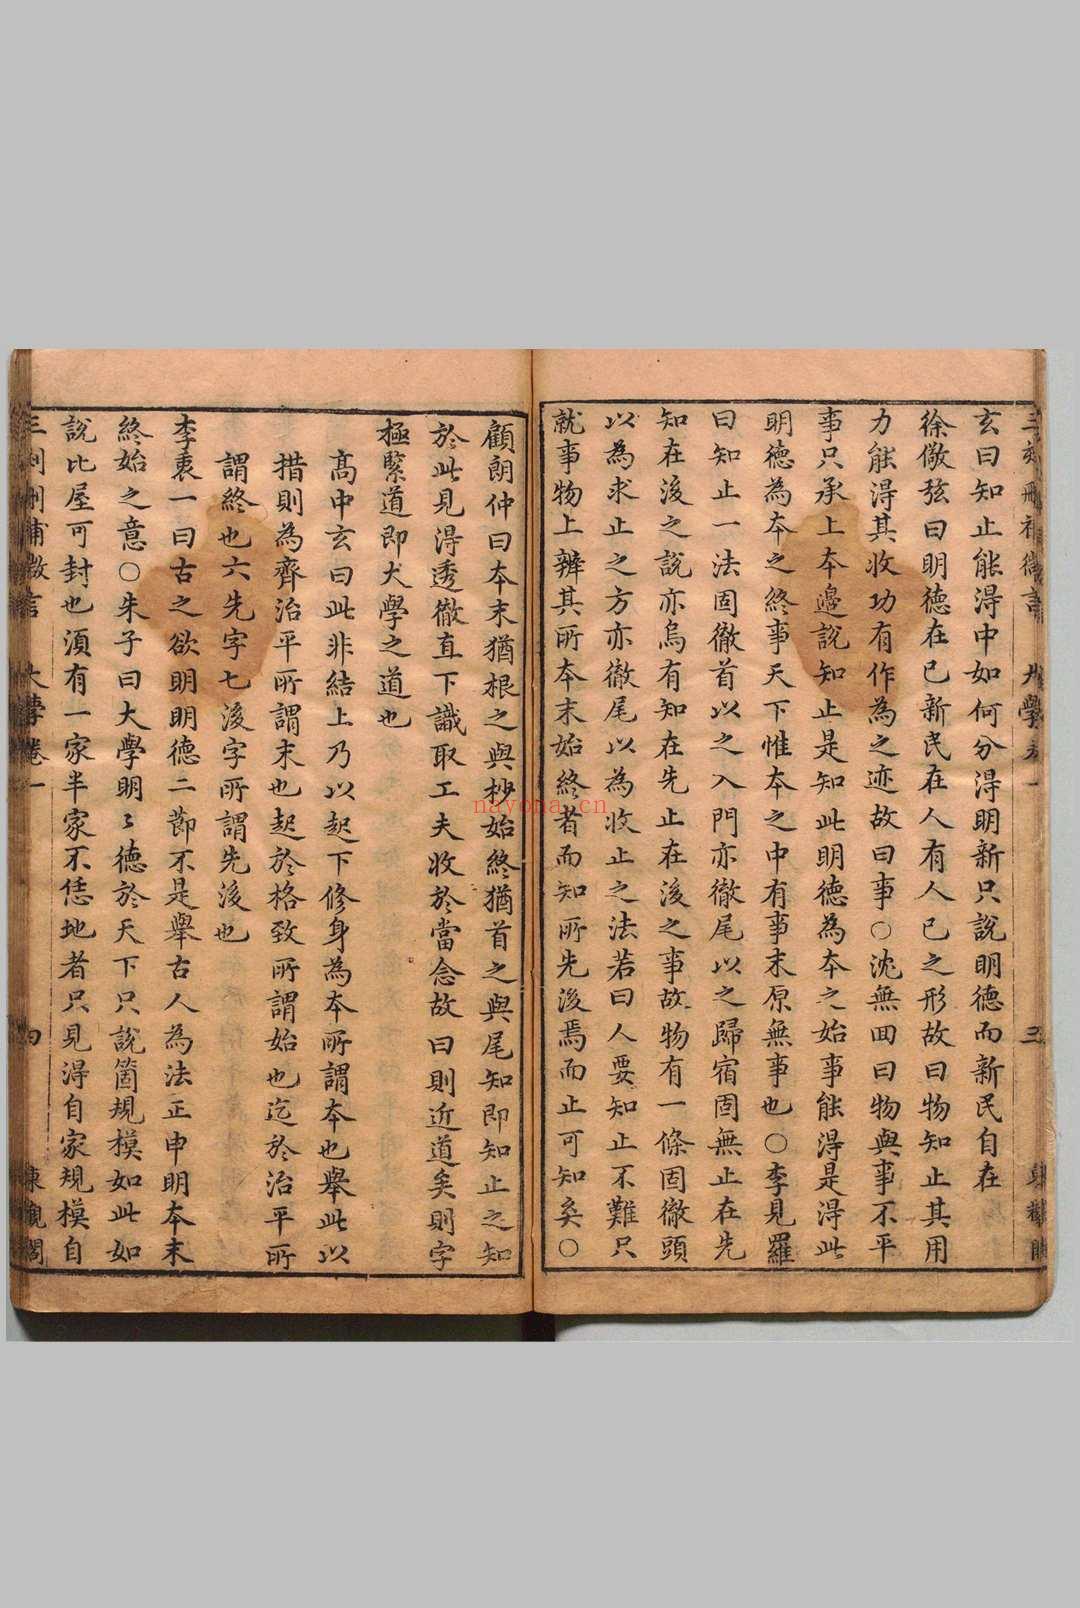 玄曰知止能淂中如何分淂明新只說明德而新民自在
徐儆弦曰明德在已新民在人人有人已之形故曰物知止其用
力能淂其收功有作為之迹故曰事○沈無回曰物與事不平
事只承上本邊說知止是知此明德為本之始事能淂是淂此
明德為本之終事天下惟本之中有事末原無事也○李見羅
曰知止一法固徹首以之入門亦徹尾以之歸宿固無止在先
知在後之說亦烏有知在先止在後之事故物有一條固徹頭
以為求止之方亦徹尾以為收止之法若曰人要知止不難只
就事物上辨其所本末始終者而知所先後焉而止可知矣○
顧朗仲曰本末猶根之與杪始終猶首之與尾知即知止之知
於此見淂透徹直下識取工夫收於當念故曰則近道矣則字
極緊道即大學之道也
高中玄曰此非結上乃以起下修身為本所謂本也舉此以
措則為齊治平所謂末也起於格致所謂始也迄於治平所
謂終也六先字七後字所謂先後也
李衷一曰古之欲明明德二節不是舉古人為法正申明本末
終始之意○朱子曰大學明〻德於天下只說箇規模如此如
說比屋可封也須有一家半家不恁地者只見淂自家規模自
大學卷一
四
東觀閣
nayona.cn